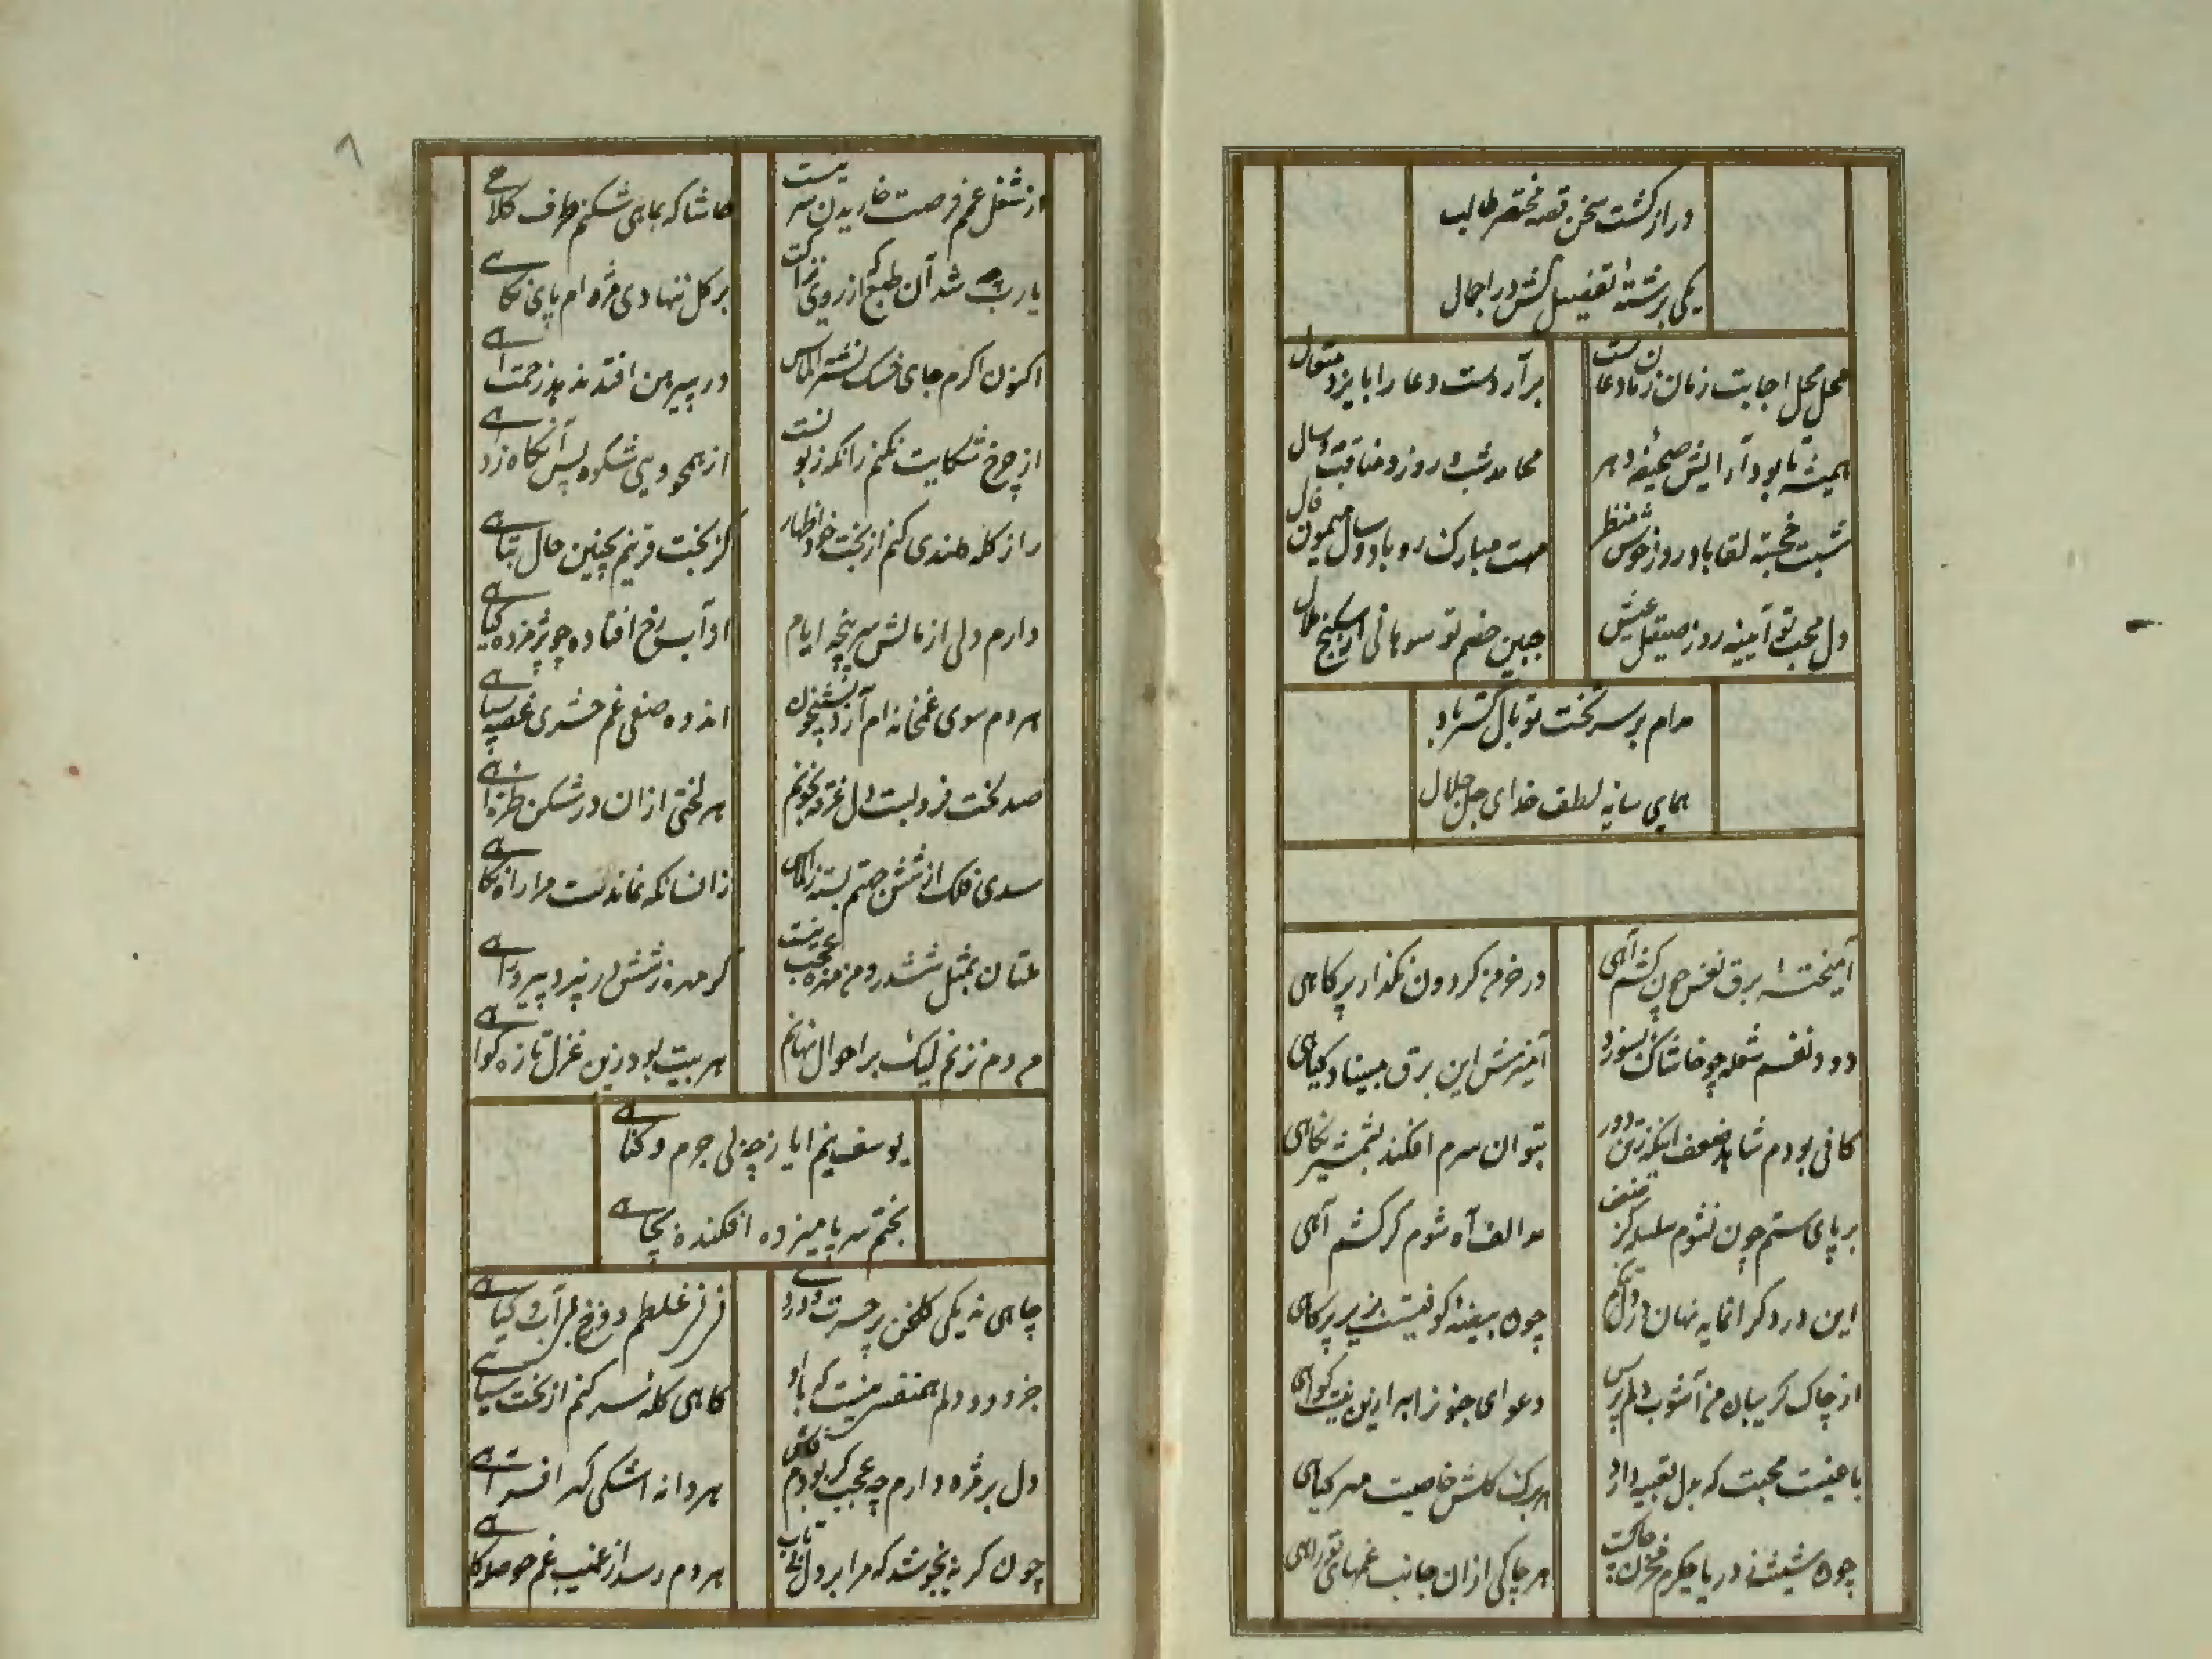 دراز گشت سخن قصه مختصر طالب
یکی برشتهٔ تفصیل کش در اجمال
محل محل اجابت زمان زمان دعاست
برآر دست دعا را بایزد متعال
همیشه تا بود آرایش صحیفه دهر
محامد شب و روز و مناقب مه و سال
شبت خجسته لقا باد و روز خوش منظر
مهت مبارک رو باد و سال میمون فال
دل محب تو آیینه روز صیقل عیش
جبین خصم تو سوهانی از شکنج ملال
مدام بر سر بخت تو بال گستر باد
همای سایه لطف خدای جل جلال
آمیختهٔ برق نفس چون کشم آهی
در خرمن گردون نگذارد پر کاهی
دود نفسم شعله چو خاشاک بسوزد
آمیزش این برق مبیناد گیاهی
کافی بودم شاهد ضعف اینکه ز من دور
بتوان سرم افکند بشمشیر نگاهی
بر پای ستم چون نشوم سلسله کز ضعف
مد الف آه شوم گر کشم آهی
این درد گرانمایه نهان در دل
چون بیضهٔ کوهیست بزیر پر کاهی
از چاک گریبان من آشوب دلم پرس
دعوای جنونرا به ازین نیست گواهی
باغیست محبت که بدل تعبیه دارد
هر برگ گلش خاصیت مهر گیاهی
چون شیشه در یا جگرم مخزن چاکست
هر چاکی ازان جانب غمهای تو راهی
از شغل غمم فرصت خاریدن سر نیست
حاشا که بماهی شکنم طرف کلاهی
یارب چه شد آن طبع که از روی نزاکت
بر گل ننهادی مژه ام پای نگاهی
اکنون اگرم جای خسک نشتر الماس
در پیرهن افتد ندهد زحمت
از چرخ شکایت نکنم زانکه زبونست
از همچو ویی شکوه پس آنگاه
راز گله مندی کنم از بخت خود اظهار
کز بخت قرینم بچنین حال تباهی
دارم دلی از مالش سرپنجه ایام
از آب رخ افتاده چو پژمرده گیاهی
هر دم سوی غمخانه ام آرد بشبیخون
اندوه صفی غم حشری غصه سپاهی
صد لخت فرو بست دل غرقه بخونم
هر لختی ازان در شکن طره
سدی فلک از شش جهتم بسته ز الماس
زانسانکه نماندست مرا راه نگاهی
ملتان بمثل ششدر و من مهره عجب نیست
گر مهره ز ششدر نبرد
هر دم نزنم لیک بر احوال نهانم
هر بیت بود زین غزل تازه گواهی
یوسف نیم اما ز چه بی جرم و گناهی
بختم سر پا میزده افکنده بچاهی
چاهی نه یکی گلخن پر حسرت و دردی
نی نی غلطم دوزخ بی آب و گیاهی
جز دود دلم همنفسی نیست که با او
گاهی گله سر کنم از بخت سیاهی
دل بر مژه دارم چه عجب گر بودم فاش
هر دانه اشکی گهر افسر
چون گریه نجوشد که مرا بر دل
هر دم رسد از غیب غم حوصله کاهی